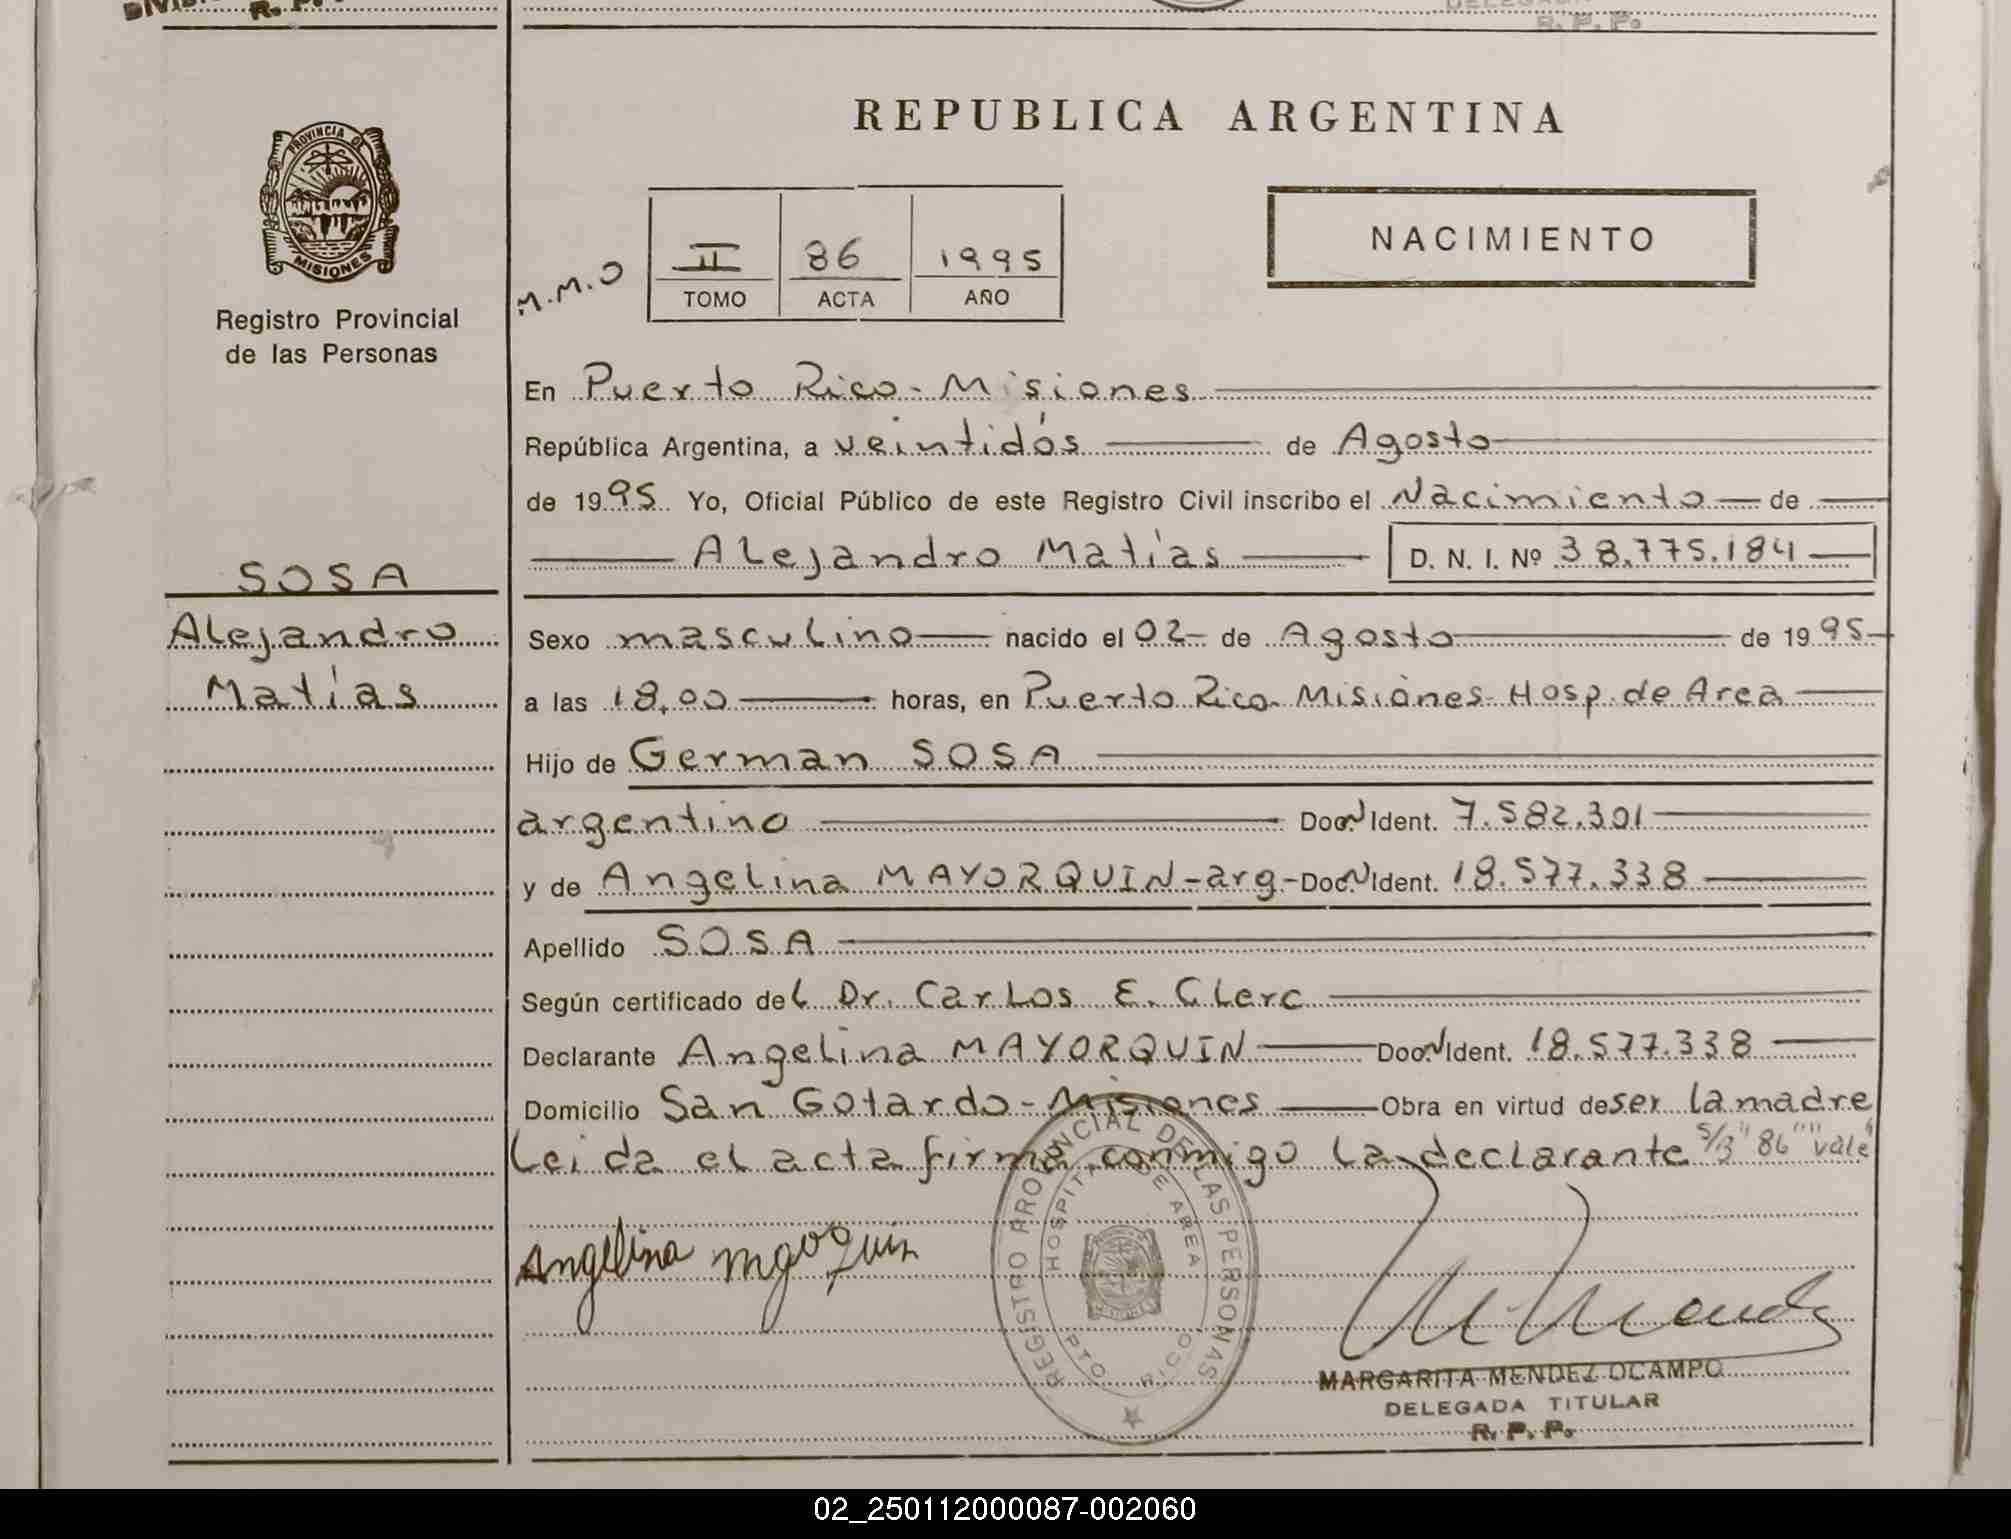 R. P. P.
R. P. P.
REPUBLICA ARGENTINA
PROVINCIA DE
MISIONES
Registro Provincial
de las Personas
M.M.O
II 86 1995
TOMO ACTA AÑO
NACIMIENTO
En Puerto Rico - Misiones
República Argentina, a veintidós de Agosto
de 1995 Yo, Oficial Público de este Registro Civil inscribo el Nacimiento de
Alejandro Matías D. N. I. Nº 38.775.184
SOSA
Alejandro
Matías
Sexo masculino nacido el 02 de Agosto de 1995
a las 18,00 horas, en Puerto Rico- Misiones- Hosp. de Area
Hijo de German SOSA
argentino Doc. N Ident. 7.582.301
y de Angelina MAYORQUIN - arg - Doc. N Ident. 18.577.338
Apellido SOSA
Según certificado del Dr. Carlos E. Clerc
Declarante Angelina MAYORQUIN Doc. N Ident. 18.577.338
Domicilio San Gotardo - Misiones Obra en virtud de ser la madre
Leida el acta firma conmigo la declarante S/B "86" "vale"
REGISTRO PROVINCIAL DE LAS PERSONAS
HOSPITAL DE AREA
PTO RICO
Angelina
MARGARITA MENDEZ OCAMPO
DELEGADA TITULAR
R. P. P.
02_250112000087-002060